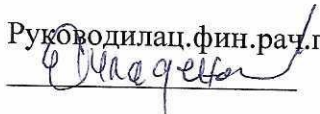 Руководилац.фин.рач.п